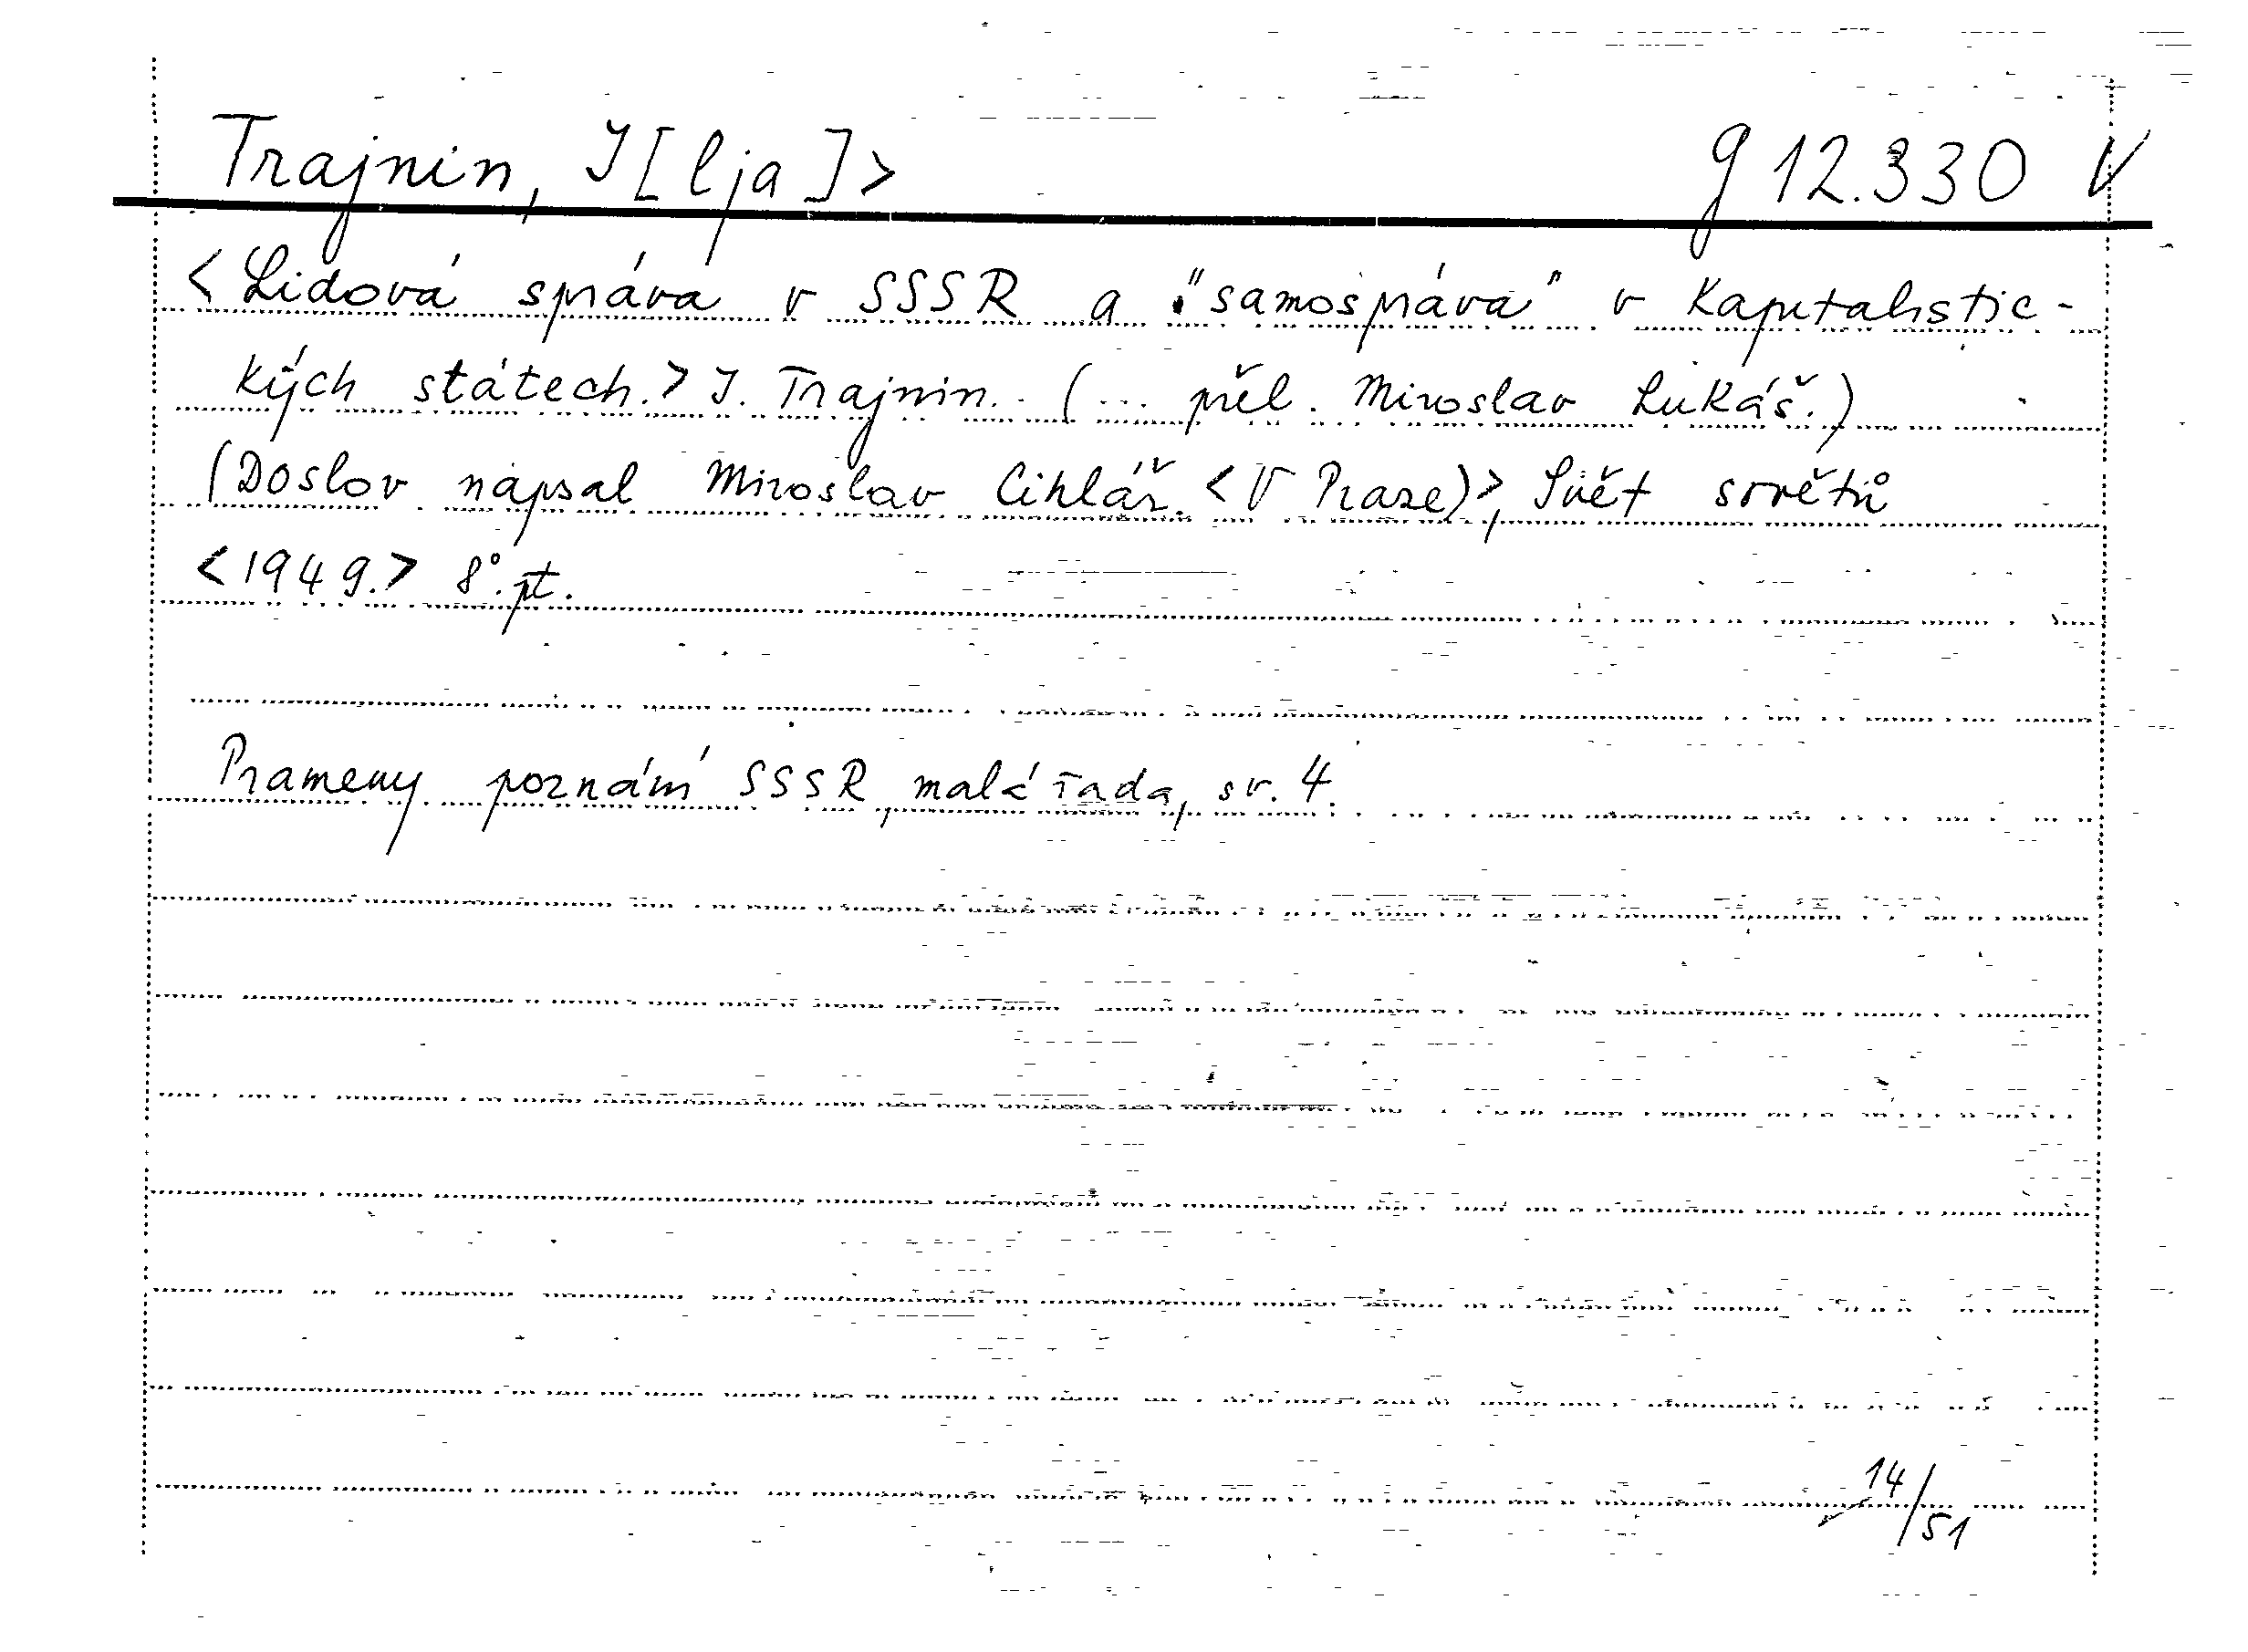 Trajnin, I[lja]> g 12.330 V
<Lidová správa v SSSR a "samospráva" v kapitalistic-
kých státech.> I. Trajnin. (... přel. Miroslav Lukáš.)
(Doslov napsal Miroslav Cihlář. <V Praze)>, Svět sovětů
<1949.> 8°. pt.
Prameny poznání SSSR, malá řada, sv. 4.
14/51